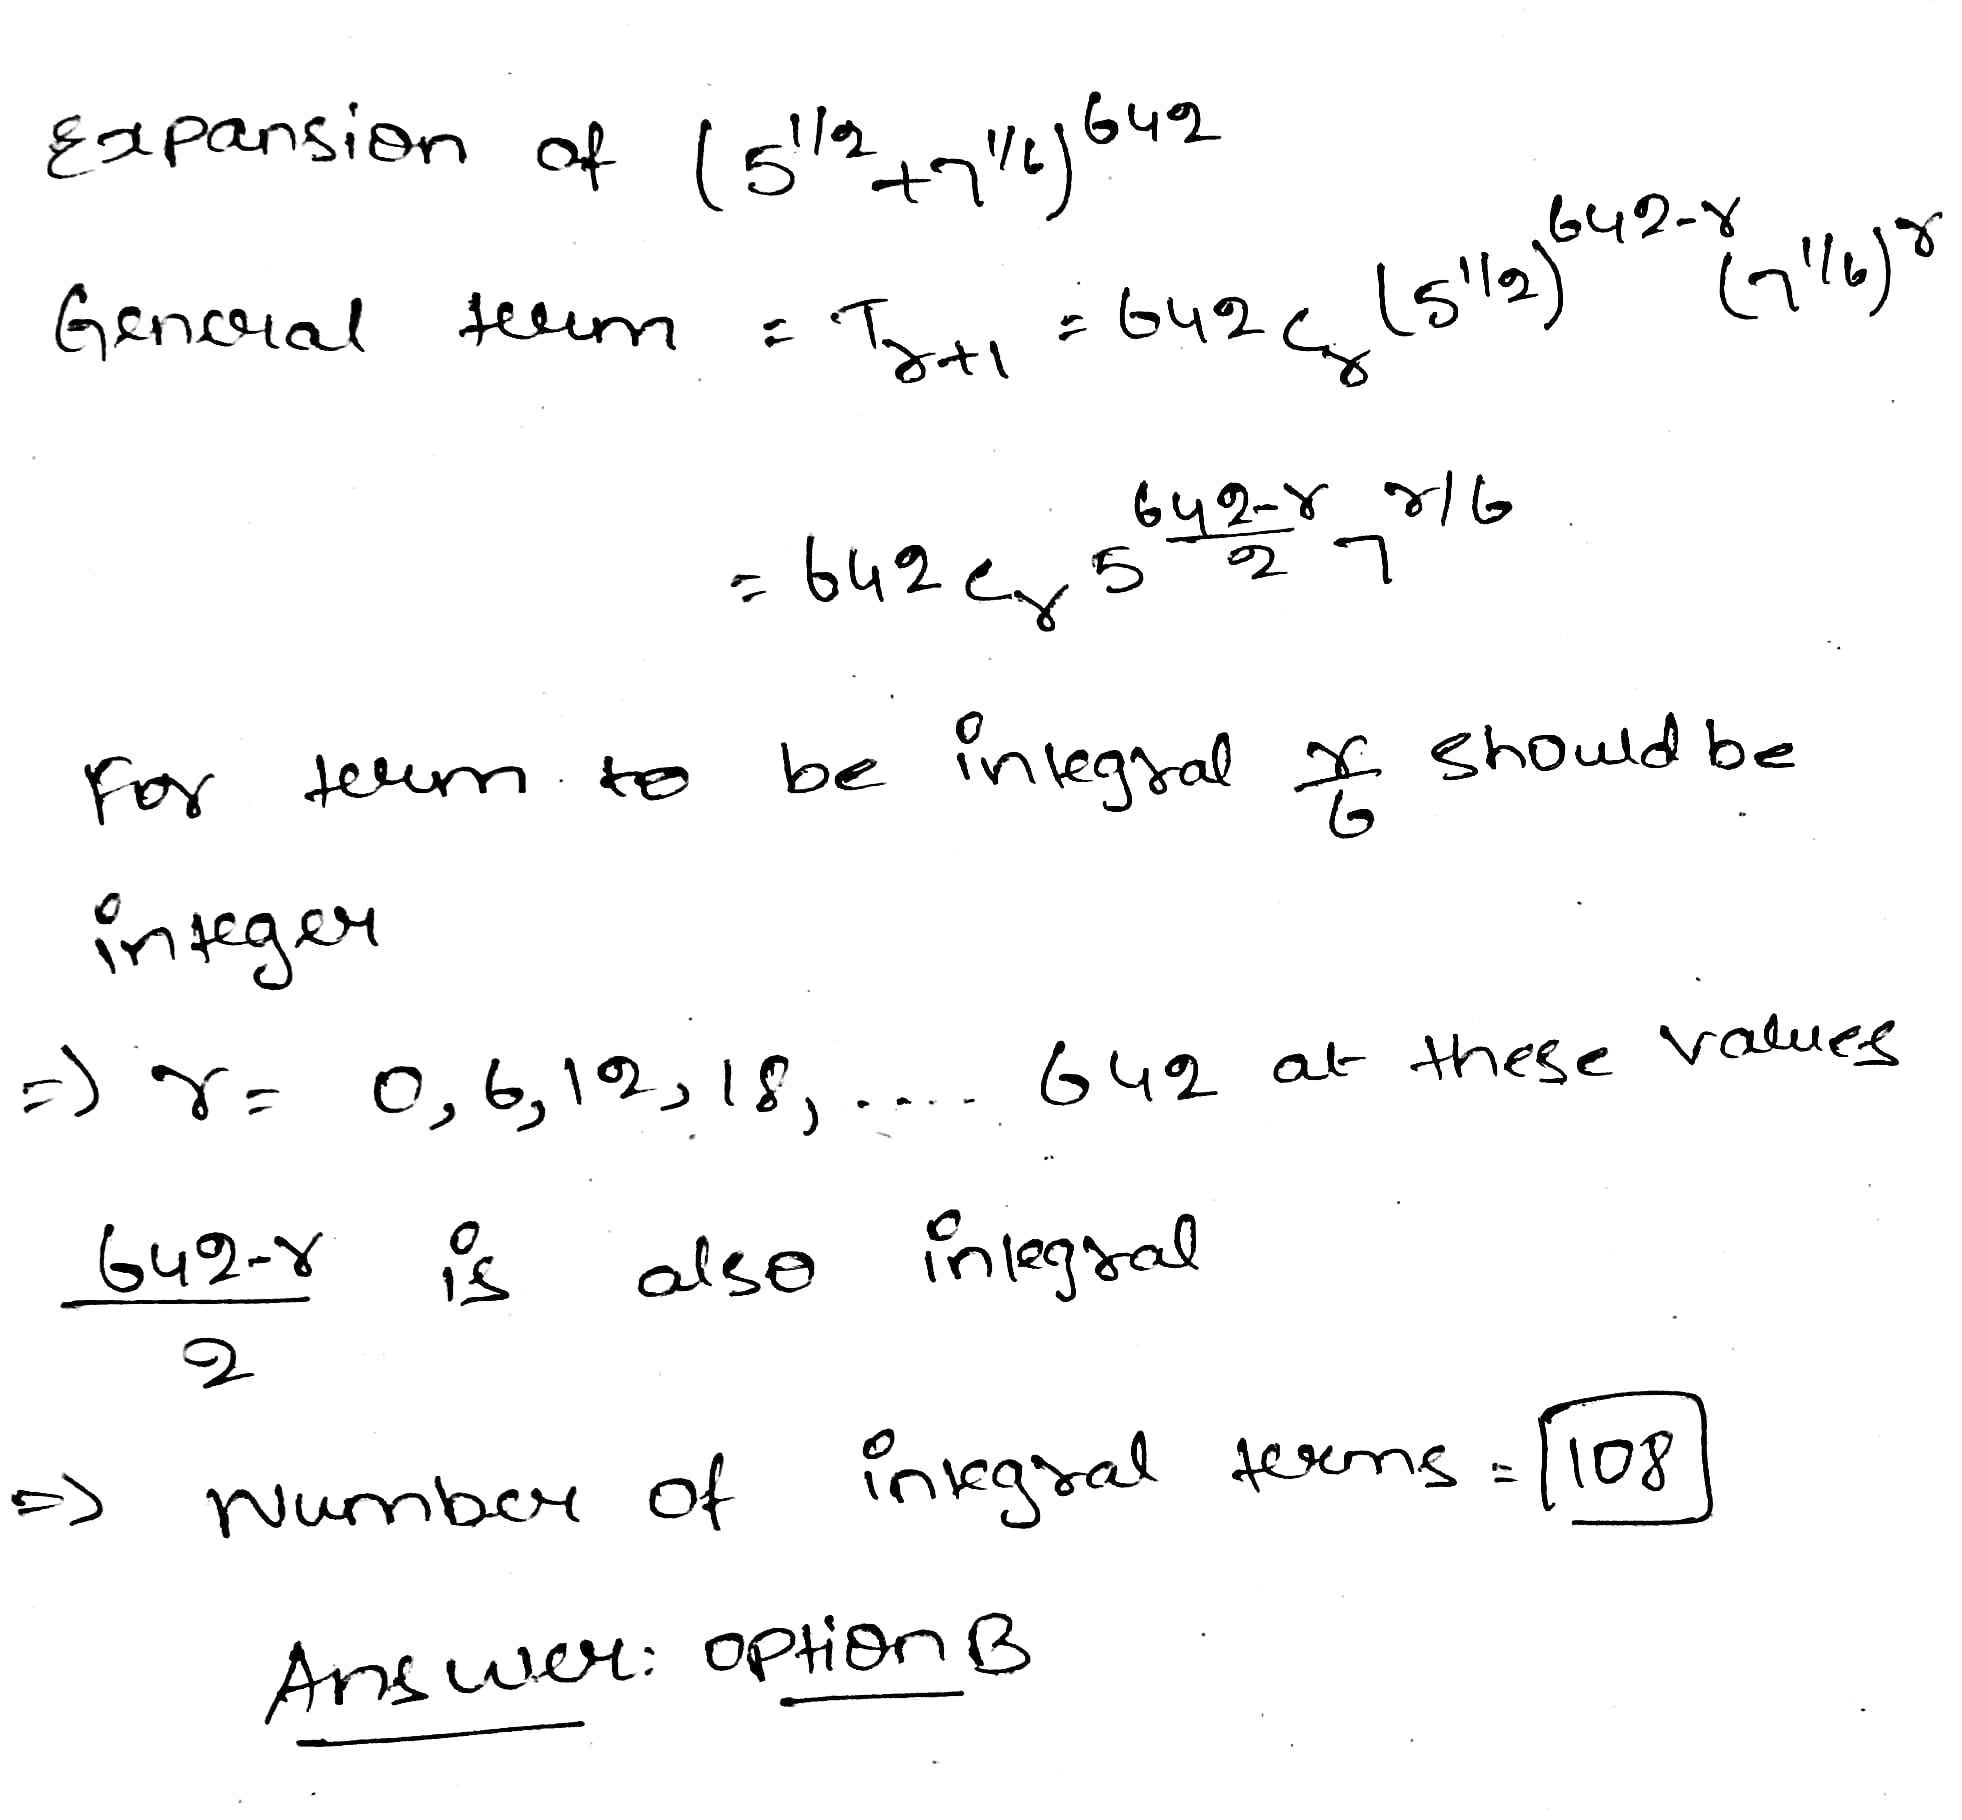 Expansion of (5^1/2 + 7^1/6)^642
General term = T_r+1 = 642 C_r (5^1/2)^642-r (7^1/6)^r
= 642 C_r 5^(642-r)/2 7^r/6
For term to be integral r/6 should be
integer
=> r = 0, 6, 12, 18, .... 642 at these values
(642-r)/2 is also integral
=> Number of integral terms = 108
Answer: option B